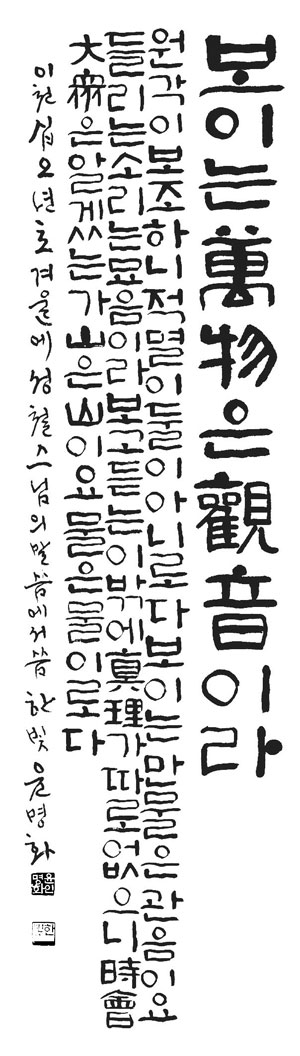 보이는萬物은觀音이라
원각이보조하니적멸이둘이아니로다보이는만물은관음이요
들리는소리는묘음이라보고듣는이밖에眞理가따로없으니時會
大衆은알겠는가山은山이요물은물이로다
이천십오년초겨울에성철스님의말씀에서씀 한빛 윤명화